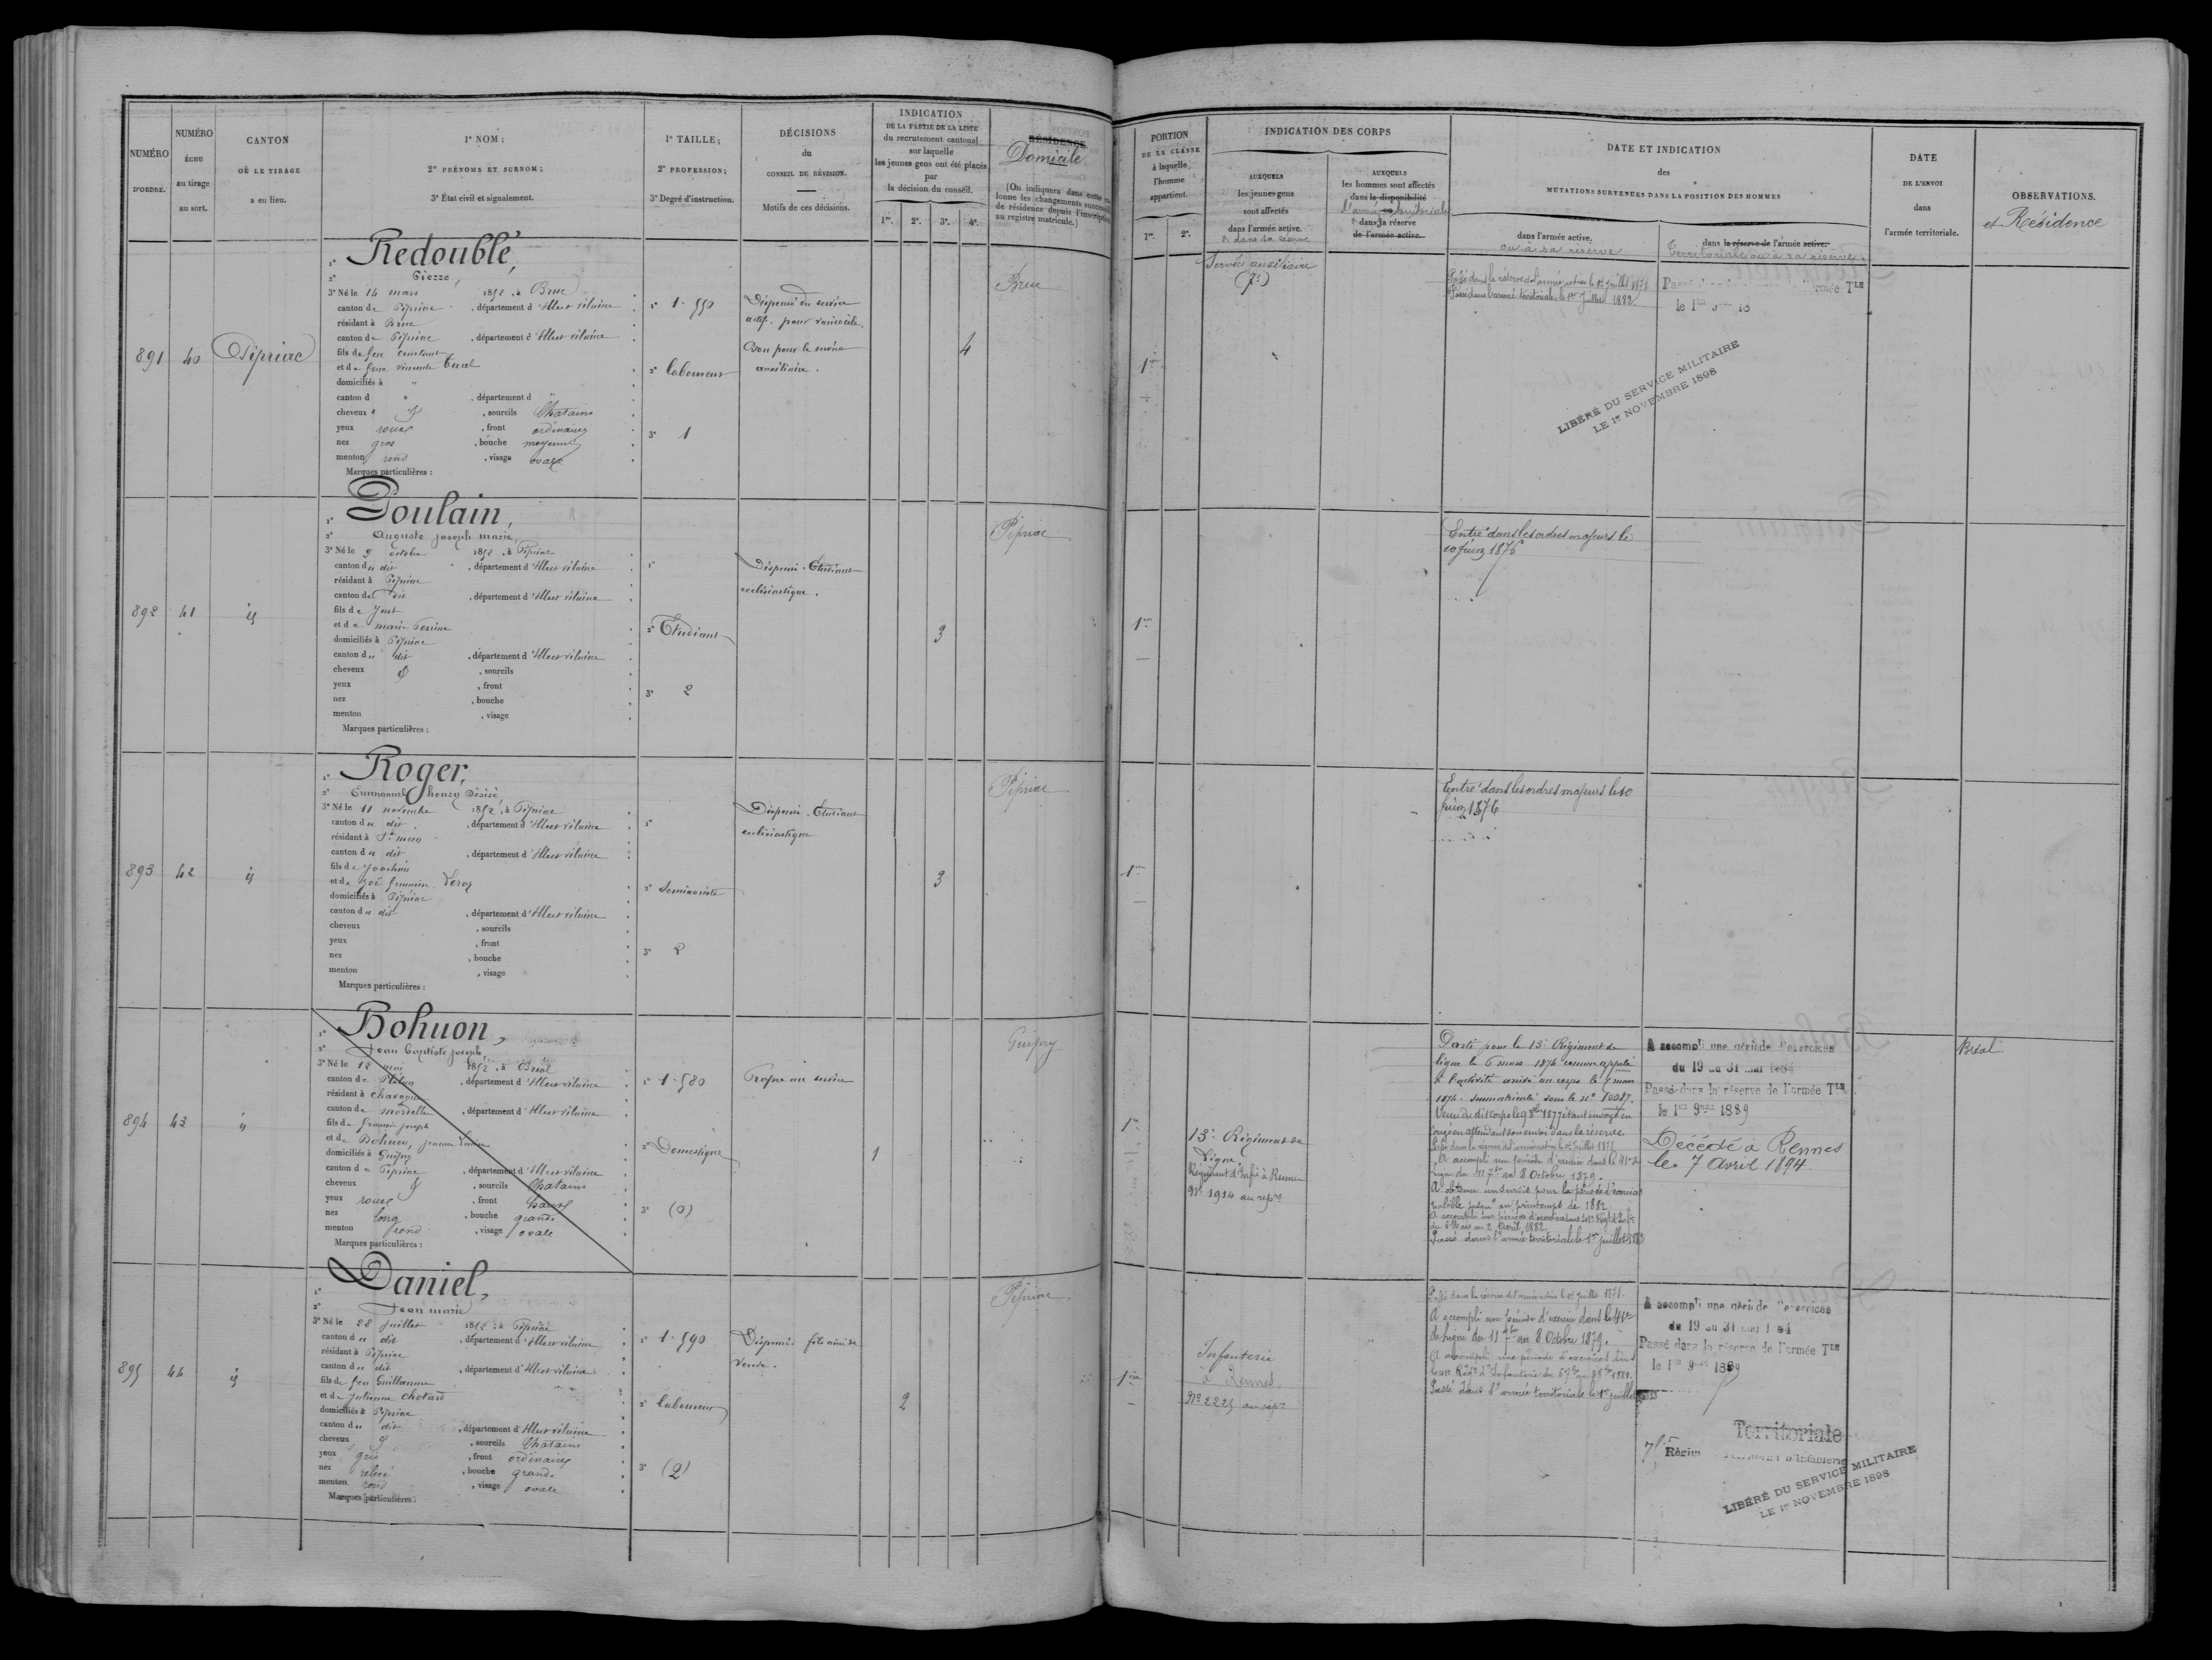 NUMÉRO
D'ORDRE.
NUMÉRO
ÉCHU
au tirage
au sort.
CANTON
OÙ LE TIRAGE
a eu lieu.
1° NOM;
2° PRÉNOMS ET SURNOM;
3° État civil et signalement.
1° TAILLE;
2° PROFESSION;
3° Degré d'instruction.
DÉCISIONS
du
CONSEIL DE RÉVISION.
Motifs de ces décisions.
INDICATION
DE LA PARTIE DE LA LISTE
du recrutement cantonal
sur laquelle
les jeunes gens ont été placés
par
la décision du conseil.
1re. 2e. 3e. 4e.
RÉSIDENCE
Domicile
(On indiquera dans cette co
lonne les changements successi
de résidence depuis l'inscription
au registre matricule.)
PORTION
DE LA CLASSE
à laquelle
l'homme
appartient.
1re. 2e.
INDICATION DES CORPS
AUXQUELS
les jeunes gens
sont affectés
dans l'armée active.
& dans sa réserve
AUXQUELS
les hommes sont affectés
dans la disponibilité
ou
l'armée territoriale
& dans sa réserve
de l'armée active.
DATE ET INDICATION
des
MUTATIONS SURVENUES DANS LA POSITION DES HOMMES
dans l'armée active.
ou à sa réserve
dans la réserve de l'armée active.
Territoriale ou à sa réserve
DATE
DE L'ENVOI
dans
l'armée territoriale.
OBSERVATIONS.
et Résidence
891
40
Pipriac
1° Redoublé,
2° Pierre,
3° Né le 14 mars 1852, à Bruc
canton de Pipriac, département d'Ille et vilaine
résidant à Bruc
canton de Pipriac, département d'Ille et vilaine
fils de feu Constant
et de feue
domiciliés à "
canton d " , département d "
cheveux & , sourcils Chatains
yeux roux, front ordinaire
nez gros, bouche moyenne
menton rond, visage ovale
Marques particulières :
1° 1.550
2° laboureur
3° 1
Dispensé du service
actif. pour varicocèle.
Bon pour le service
auxiliaire.
4
Bruc
1re
Service auxiliaire
Passé dans la réserve de l'armée active le 1er juillet 1878
Passé dans l'armée territoriale le 1er Juillet 1882
LIBÉRÉ DU SERVICE MILITAIRE
LE 1er NOVEMBRE 1898
892
41
id
1° Poulain,
2° Auguste joseph marie,
3° Né le 9 octobre 1852, à Pipriac
canton du dit, département d'Ille et vilaine
résidant à Pipriac
canton du dit, département d'Ille et vilaine
fils de Just
et de marie Perrine
domiciliés à Pipriac
canton du dit, département d'Ille et vilaine
cheveux , sourcils
yeux , front
nez , bouche
menton , visage
Marques particulières :
1°
2° Etudiant
3° 2
Dispensé. Etudiant
ecclésiastique.
3
Pipriac
1re
Entré dans les ordres majeurs le
10 juin 1876
893
42
id
1° Roger,
2° Emmanuel henry Désiré
3° Né le 11 novembre 1852, à Pipriac
canton du dit, département d'Ille et vilaine
résidant à St meen
canton du dit, département d'Ille et vilaine
fils de Joachim
et de
domiciliés à Pipriac
canton du dit, département d'Ille et vilaine
cheveux , sourcils
yeux , front
nez , bouche
menton , visage
Marques particulières :
1°
2° Seminariste
3° 2
Dispensé. Etudiant
ecclésiastique
3
Pipriac
1re
Entré dans les ordres majeurs le 10
juin 1876
894
43
id
1° Bohuon,
2° Jean baptiste joseph,
3° Né le 12 mai 1852, à Bréal
canton de Plélan, département d'Ille et vilaine
résidant à Chavagne
canton de mordelles, département d'Ille et vilaine
fils de françois joseph
et de Bohuon, jeanne
domiciliés à Guipry
canton de Pipriac, département d'Ille et vilaine
cheveux & , sourcils Chatains
yeux roux, front haut
nez long, bouche grande
menton rond, visage ovale
Marques particulières :
1° 1.580
2° Domestique
3° (0)
Propre au service
1
Guipry
1re
13e Régiment de
Ligne
Régiment d'Infie à Rennes
No 1914 au repre
Parti pour le 13e Régiment de
ligne le 6 mars 1876 comme appelé
à l'activité arrivé au corps le 7 mars
1876. Immatriculé sous le n° 10087.
Venu du dit corps le 9 8bre 1877 étant envoyé en
congé en attendant son envoi dans la réserve.
Passé dans la réserve de l'armée active le 1er juillet 1878
A accompli une période d'exercice dans le 41e de
Ligne du 11 7bre au 8 Octobre 1879.
A obtenu un sursis pour la période d'exercices
valable jusqu'au printemps de 1882
A accompli une période d'exercices dans le 41e Régt d'Infie
du 6 Mars au 2 Avril 1882.
Passé dans l'armée territoriale le 1er juillet 1883
A accompli une période d'exercices
du 19 au 31 mai 1884
Passé dans la réserve de l'armée Tle
le 1er 9bre 1889
Décédé à Rennes
le 7 Avril 1894
Bréal
895
44
id
1° Daniel,
2° Jean marie
3° Né le 28 juillet 1852, à Pipriac
canton du dit, département d'Ille et vilaine
résidant à Pipriac
canton du dit, département d'Ille et vilaine
fils de feu Guillaume
et de Julienne Chotard
domiciliés à Pipriac
canton du dit, département d'Ille et vilaine
cheveux & , sourcils Chatains
yeux gris, front ordinaire
nez relevé, bouche grande
menton rond, visage ovale
Marques particulières :
1° 1.590
2° laboureur
3° (2)
Dispensé. fils ainé de
veuve.
2
Pipriac
1re
Infanterie
à Rennes.
No 2225 au repre
Passé dans la réserve de l'armée active le 1er juillet 1878.
A accompli une période d'exercice dans le 41e
de Ligne du 11 7bre au 8 Octobre 1879.
A accompli une période d'exercices dans
Régt d'Infanterie
Passé dans l'armée territoriale le 1er juillet
A accompli une période d'exercices
du 19 au 31 mai 1884
Passé dans la réserve de l'armée Tle
le 1er 9bre 1889
Territoriale
Régim
d'Infanterie
LIBÉRÉ DU SERVICE MILITAIRE
LE 1er NOVEMBRE 1898